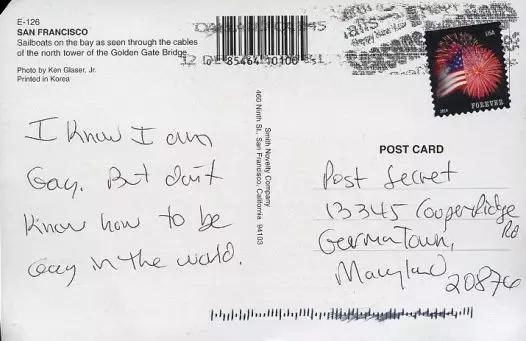 E-126
SAN FRANCISCO
Sailboats on the bay as seen through the cables
of the north tower of the Golden Gate Bridge.
Photo by Ken Glaser, Jr.
Printed in Korea
85464 10106
USA
FOREVER
2014
Smith Novelty Company
460 Ninth St., San Francisco, California 94103
I know I am
Gay. But don't
know how to be
Gay in the world.
POST CARD
Post Secret
13345 Copper Ridge
Rd
Germantown,
Maryland
20876